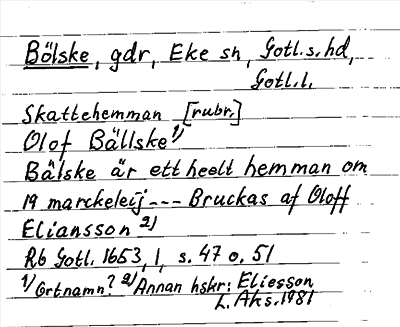 Bölske, gdr, Eke sn, Gotl.s.hd,
Gotl.l.
Skattehemman [rubr.]
Olof Bällske 1)
Bälske är ett heelt hemman om
19 marckeleij--- Bruckas af Oloff
Eliansson 2)
Rb Gotl. 1653, 1, s. 47 o. 51
1) Ortnamn? 2) Annan hskr: Eliesson
L. Ahs. 1981